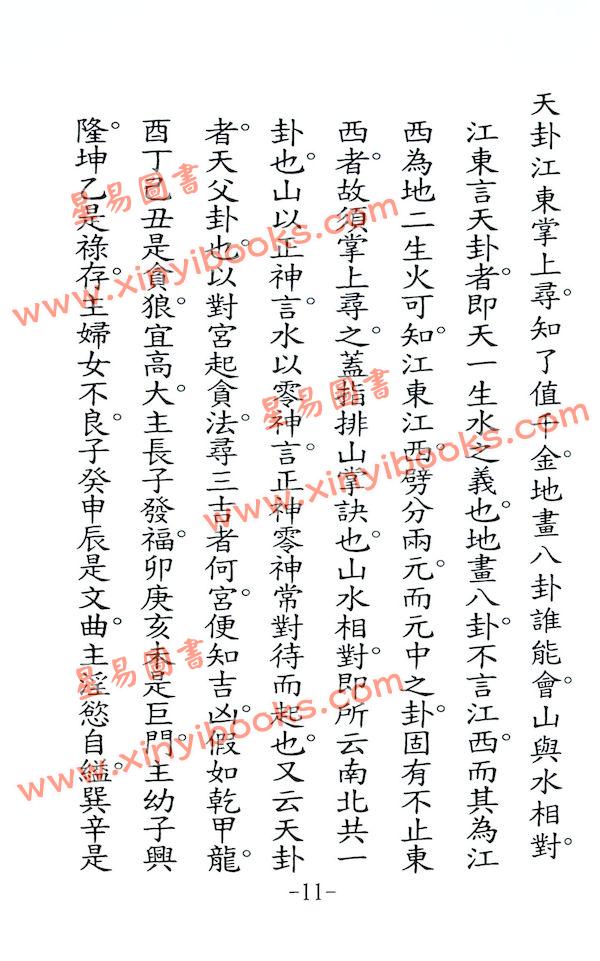 天卦江東掌上尋。知了值千金。地畫八卦誰能會。山與水相對。
江東言天卦者。即天一生水之義也。地畫八卦。不言江西。而其為江
西為地二生火可知。江東江西。劈分兩元。而元中之卦。固有不止東
西者。故須掌上尋之。蓋指排山掌訣也。山水相對。即所云南北共一
卦也。山以正神言。水以零神言。正神零神常對待而起也。又云天卦
者。天父卦也。以對宮起貪法。尋三吉者何宮。便知吉凶。假如乾甲龍。
酉丁己丑是貪狼。宜高大。主長子發福。卯庚亥未是巨門。主幼子興
隆。坤乙是祿存。主婦女不良。子癸申辰是文曲。主淫慾自縊。巽辛是
-11-
星易圖書
www.xinyibooks.com
星易圖書
www.xinyibooks.com
星易圖書
www.xinyibooks.com